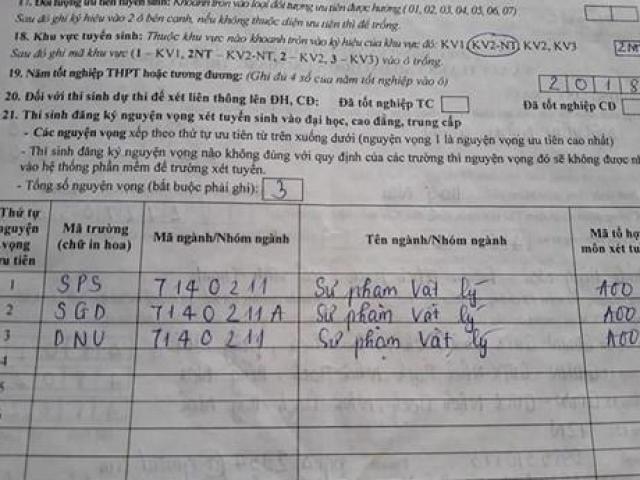 17. Đối tượng ưu tiên tuyển sinh: Khoanh tròn vào loại đối tượng ưu tiên được hưởng ( 01, 02, 03, 04, 05, 06, 07)
Sau đó ghi ký hiệu vào 2 ô bên cạnh, nếu không thuộc diện ưu tiên thì để trống.
18. Khu vực tuyển sinh: Thuộc khu vực nào khoanh tròn vào ký hiệu của khu vực đó: KV1 KV2-NT, KV2, KV3
Sau đó ghi mã khu vực (1 – KV1, 2NT – KV2-NT, 2 – KV2, 3 – KV3) vào ô trống. 2 NT
19. Năm tốt nghiệp THPT hoặc tương đương: (Ghi đủ 4 số của năm tốt nghiệp vào ô) 2 0 1 8
20. Đối với thí sinh dự thi để xét liên thông lên ĐH, CĐ: Đã tốt nghiệp TC Đã tốt nghiệp CĐ
21. Thí sinh đăng ký nguyện vọng xét tuyển sinh vào đại học, cao đẳng, trung cấp
- Các nguyện vọng xếp theo thứ tự ưu tiên từ trên xuống dưới (nguyện vọng 1 là nguyện vọng ưu tiên cao nhất)
- Thí sinh đăng ký nguyện vọng nào không đúng với quy định của các trường thì nguyện vọng đó sẽ không được
vào hệ thống phần mềm để trường xét tuyển.
- Tổng số nguyện vọng (bắt buộc phải ghi): 3
Thứ tự nguyện vọng ưu tiên Mã trường (chữ in hoa) Mã ngành/Nhóm ngành Tên ngành/Nhóm ngành Mã tổ hợ môn xét tu
1 SPS 7140211 Sư phạm Vật lý A00
2 SGD 7140211A Sư phạm Vật lý A00
3 DNU 7140211 Sư phạm Vật lý A00
4
5